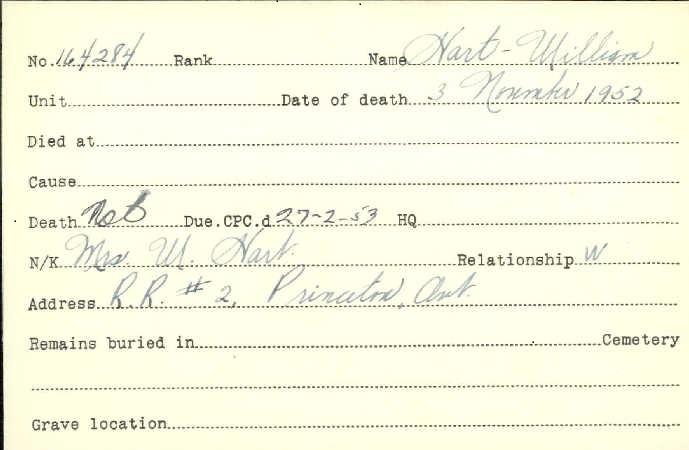 No. 164284 Rank Name Hart - William
Unit Date of death 3 November 1952
Died at
Cause
Death Not Due.CPC.d 27-2-53 HQ
N/K Mrs. W. Hart. Relationship W
Address R.R. # 2, Princeton, Ont.
Remains buried in Cemetery
Grave location